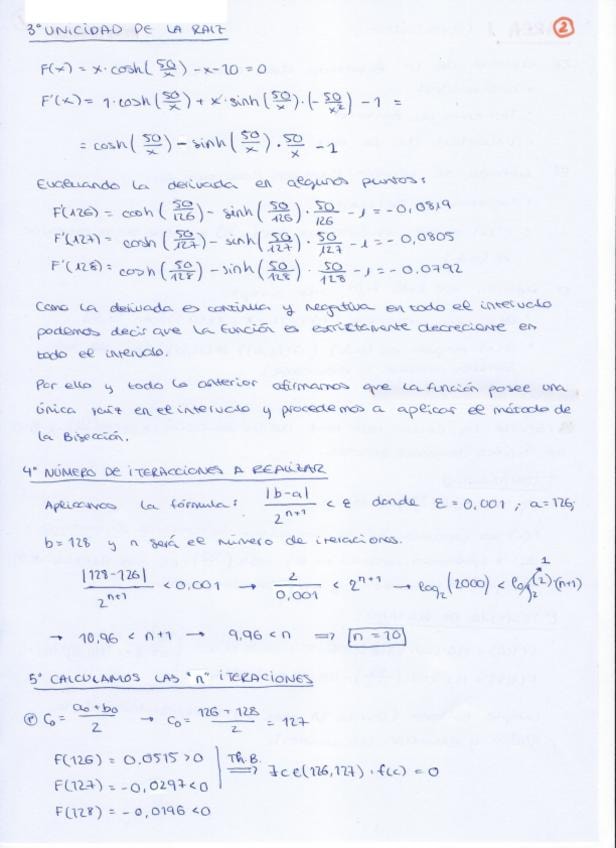 3º UNICIDAD DE LA RAIZ
2
F(x) = x·cosh(50/x) - x - 10 = 0
F'(x) = 1·cosh(50/x) + x·sinh(50/x)·(-50/x²) - 1 =
= cosh(50/x) - sinh(50/x)·50/x - 1
Evaluando la derivada en algunos puntos:
F'(126) = cosh(50/126) - sinh(50/126)·50/126 - 1 = -0,0819
F'(127) = cosh(50/127) - sinh(50/127)·50/127 - 1 = -0,0805
F'(128) = cosh(50/128) - sinh(50/128)·50/128 - 1 = -0.0792
Como la derivada es continua y negativa en todo el intervalo
podemos decir que la función es estrictamente decreciente en
todo el intervalo.
Por ello y todo lo anterior afirmamos que la función posee una
única raiz en el intervalo y procedemos a aplicar el método de
la Bisección.
4º NÚMERO DE ITERACCIONES A REALIZAR
Aplicamos la fórmula: |b-a|/2^(n+1) < ε donde ε = 0,001 ; a = 126;
b = 128 y n será el número de iteraciones.
|128-126|/2^(n+1) < 0,001 → 2/0,001 < 2^(n+1) → log₂(2000) < log₂(2)^1·(n+1)
→ 10,96 < n+1 → 9,96 < n ⟹ n = 10
5º CALCULAMOS LAS "n" ITERACIONES
C₀ = (a₀+b₀)/2 → C₀ = (126+128)/2 = 127
F(126) = 0.0515 > 0
F(127) = -0,0297 < 0 Th.B. ⟹ ∃ c ∈ (126,127) · f(c) = 0
F(128) = -0,0196 < 0